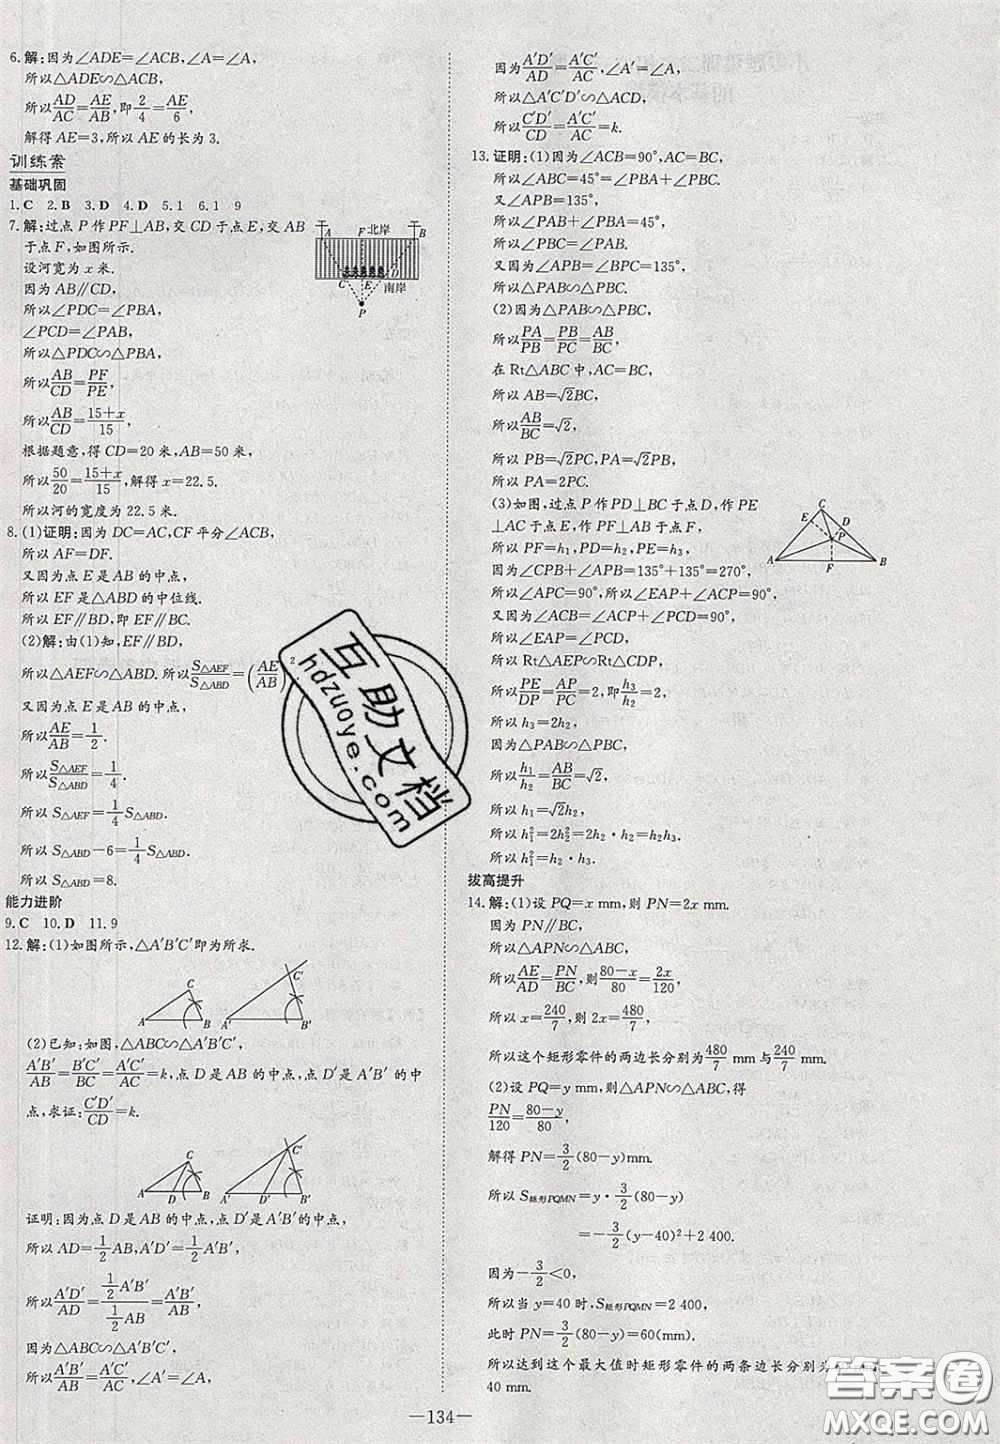 6.解:因为∠ADE=∠ACB,∠A=∠A,
所以△ADE∽△ACB,
所以AD/AC=AE/AB,即2/4=AE/6,
解得AE=3,所以AE的长为3.
训练案
基础巩固
1.C 2.B 3.D 4.D 5.1 6.1 9
7.解:过点P作PF⊥AB,交CD于点E,交AB
于点F,如图所示.
设河宽为x米.
因为AB∥CD,
所以∠PDC=∠PBA,
∠PCD=∠PAB,
所以△PDC∽△PBA,
所以AB/CD=PF/PE,
所以AB/CD=(15+x)/15,
根据题意,得CD=20米,AB=50米,
所以50/20=(15+x)/15,解得x=22.5.
所以河的宽度为22.5米.
A F 北岸 B
C E D 南岸
P
8.(1)证明:因为DC=AC,CF平分∠ACB,
所以AF=DF.
又因为点E是AB的中点,
所以EF是△ABD的中位线.
所以EF∥BD,即EF∥BC.
(2)解:由(1)知,EF∥BD,
所以△AEF∽△ABD.所以S△AEF/S△ABD=(AE/AB)²
又因为点E是AB的中点,
所以AE/AB=1/2.
所以S△AEF/S△ABD=1/4
所以S△AEF=1/4S△ABD.
所以S△ABD-6=1/4S△ABD.
所以S△ABD=8.
能力进阶
9.C 10.D 11.9
12.解:(1)如图所示,△A′B′C′即为所求.
C A B C′ A′ B′
(2)已知:如图,△ABC∽△A′B′C′,
A′B′/AB=B′C′/BC=A′C′/AC=k,点D是AB的中点,点D′是A′B′的中
点,求证:C′D′/CD=k.
C A D B C′ A′ D′ B′
证明:因为点D是AB的中点,点D′是A′B′的中点,
所以AD=1/2AB,A′D′=1/2A′B′,
所以A′D′/AD=(1/2A′B′)/(1/2AB)=A′B′/AB,
因为△ABC∽△A′B′C′,
所以A′B′/AB=A′C′/AC,∠A′=∠A,
因为A′D′/AD=A′C′/AC,∠A′=∠A,
所以△A′C′D′∽△ACD,
所以C′D′/CD=A′C′/AC=k.
13.证明:(1)因为∠ACB=90°,AC=BC,
所以∠ABC=45°=∠PBA+∠PBC,
又∠APB=135°,
所以∠PAB+∠PBA=45°,
所以∠PBC=∠PAB.
又因为∠APB=∠BPC=135°,
所以△PAB∽△PBC.
(2)因为△PAB∽△PBC,
所以PA/PB=PB/PC=AB/BC,
在Rt△ABC中,AC=BC,
所以AB=√2BC,
所以AB/BC=√2,
所以PB=√2PC,PA=√2PB,
所以PA=2PC.
(3)如图,过点P作PD⊥BC于点D,作PE
⊥AC于点E,作PF⊥AB于点F,
所以PF=h₁,PD=h₂,PE=h₃,
因为∠CPB+∠APB=135°+135°=270°,
所以∠APC=90°,所以∠EAP+∠ACP=90°,
又因为∠ACB=∠ACP+∠PCD=90°,
所以∠EAP=∠PCD,
所以Rt△AEP∽Rt△CDP,
所以PE/DP=AP/PC=2,即h₃/h₂=2,
所以h₃=2h₂,
因为△PAB∽△PBC,
所以h₁/h₂=AB/BC=√2,
所以h₁=√2h₂,
所以h₁²=2h₂²=2h₂·h₂=h₂h₃,
所以h₁²=h₂·h₃.
C E D P A F B
拔高提升
14.解:(1)设PQ=x mm,则PN=2x mm.
因为PN∥BC,
所以△APN∽△ABC,
所以AE/AD=PN/BC,则(80-x)/80=2x/120,
所以x=240/7,则2x=480/7,
所以这个矩形零件的两边长分别为480/7 mm与240/7 mm.
(2)设PQ=y mm,则△APN∽△ABC,得
PN/120=(80-y)/80,
解得PN=3/2(80-y)mm.
所以S矩形PQMN=y·3/2(80-y)
=-3/2(y-40)²+2 400.
因为-3/2<0,
所以当y=40时,S矩形PQMN=2 400,
此时PN=3/2(80-y)=60(mm).
所以达到这个最大值时矩形零件的两条边长分别为
40 mm.
—134—
互助文档
hdzuoye.com
答案圈
MXQE.COM